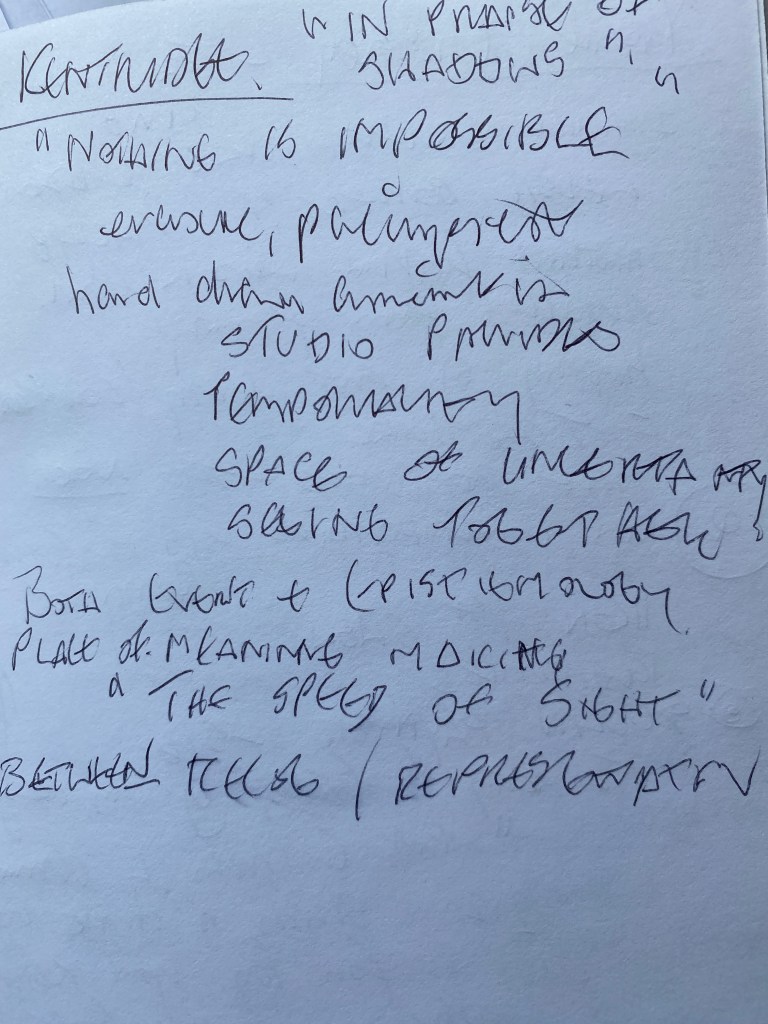 "IN PRAISE OF
KENTRIDGE. SHADOWS",
"NOTHING IS IMPOSSIBLE"
erasure, palimpsest
hand drawn
STUDIO PROVIDES
TEMPORALITY
SPACE OF UNCERTAINTY
SEEING TOGETHER
BOTH EVENT + EPISTEMOLOGY.
PLACE OF MEANING MAKING
"THE SPEED OF SIGHT"
BETWEEN / REPRESENTATION